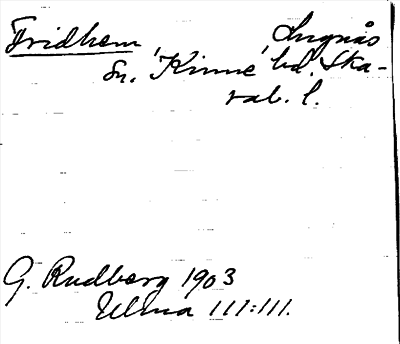 Fridhem, Lugnås
Sn, Kinne hd. Ska-
rab. l.
G. Rudberg 1903
Ulma 111:111.